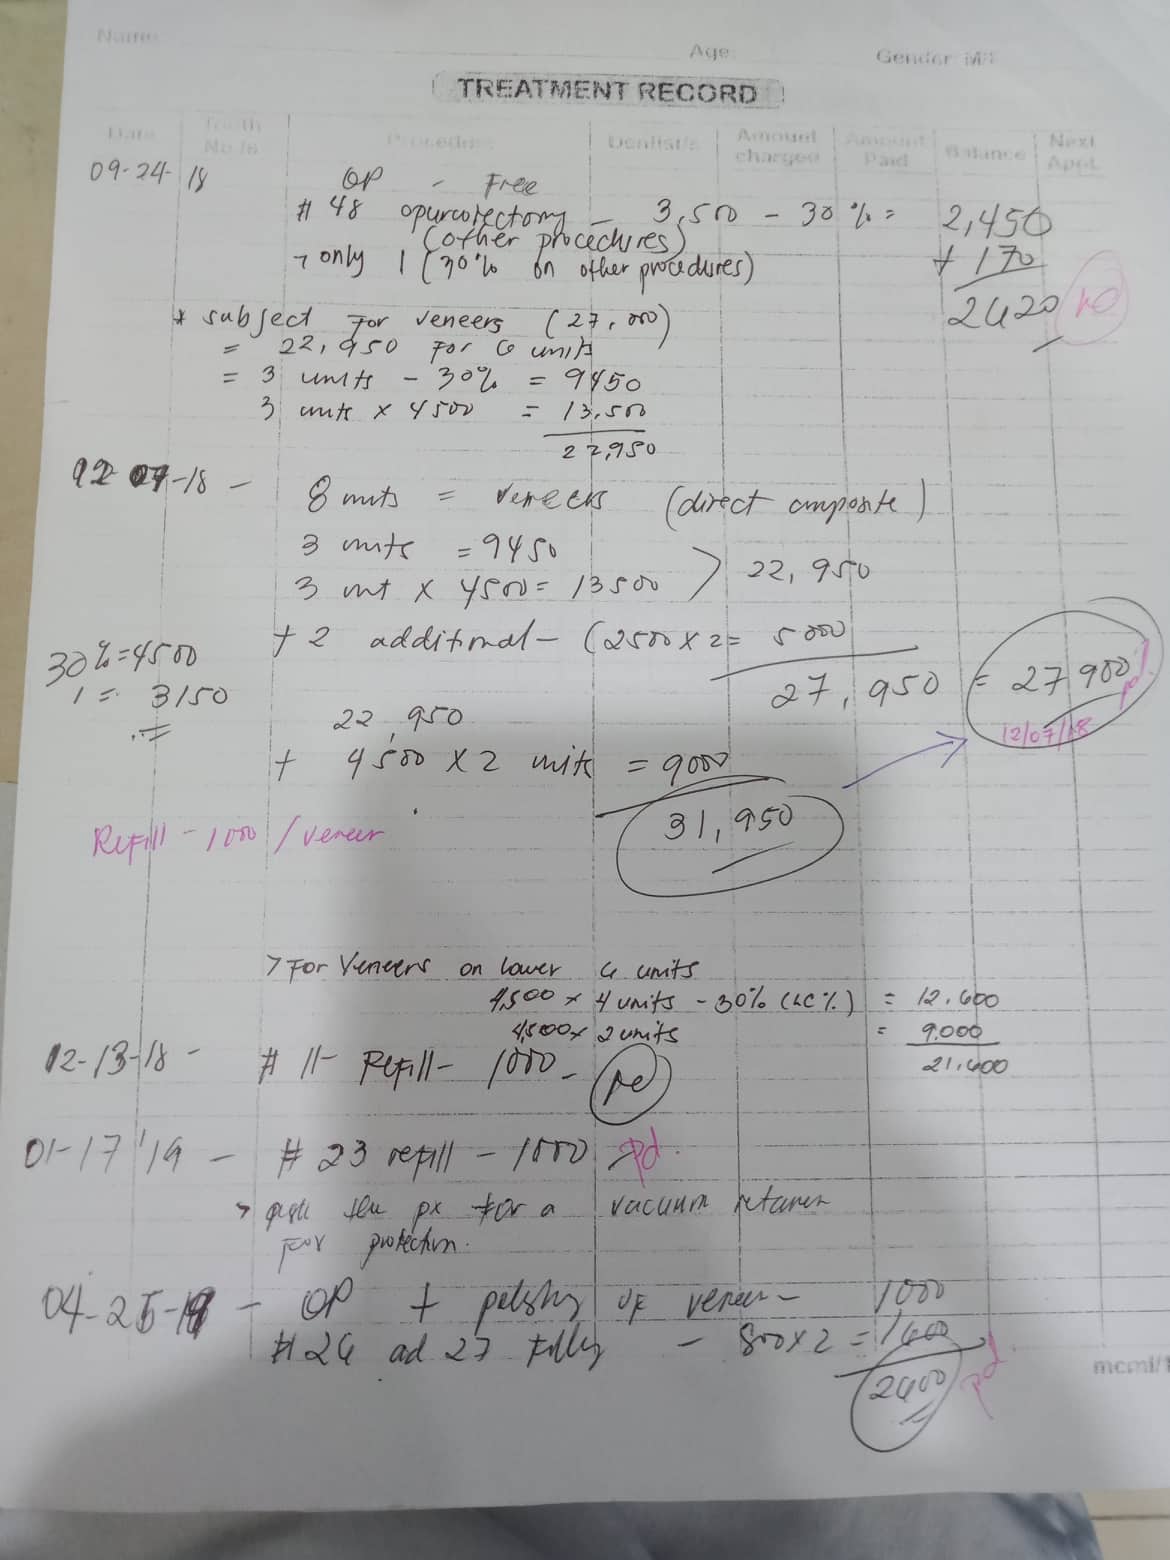 Name:
Age:
Gender: M/F
TREATMENT RECORD
Date Tooth No./s Procedure Dentist/s Amount charged Amount Paid Balance Next Appt.
09-24-18 OP - Free
# 48 opurculectomy - 3,500 - 30% = 2,450
(other procedures) + 170
→ only 1 (30% on other procedures)
2620 pd
* subject for veneers (27,000)
= 22,950 for 6 units
= 3 units - 30% = 9450
3 units x 4500 = 13,500
22,950
12-07-18 - 8 units = veneers (direct composite)
3 units = 9450
3 unt x 4500 = 13500 > 22,950
+ 2 additional - (2500 x 2 = 5000
27,950 = 27900 pd
12/07/18
30% = 4500
1 = 3150
22,950
+ 4500 x 2 units = 9000
31,950
Refill - 1000 / veneer
> For Veneers on lower 6 units
4,500 x 4 units - 30% ( %) = 12,600
4,500 x 2 units = 9,000
21,600
12-13-18 - # 11 - Refill - 1000 - pd
01-17'19 - # 23 refill - 1000 pd.
> the px for a vacuum retainer
for protection.
04-25-19 - OP + polishing of veneer - 1000
#26 ad 27 - 800 x 2 = 1600
2600 pd
mcml/1